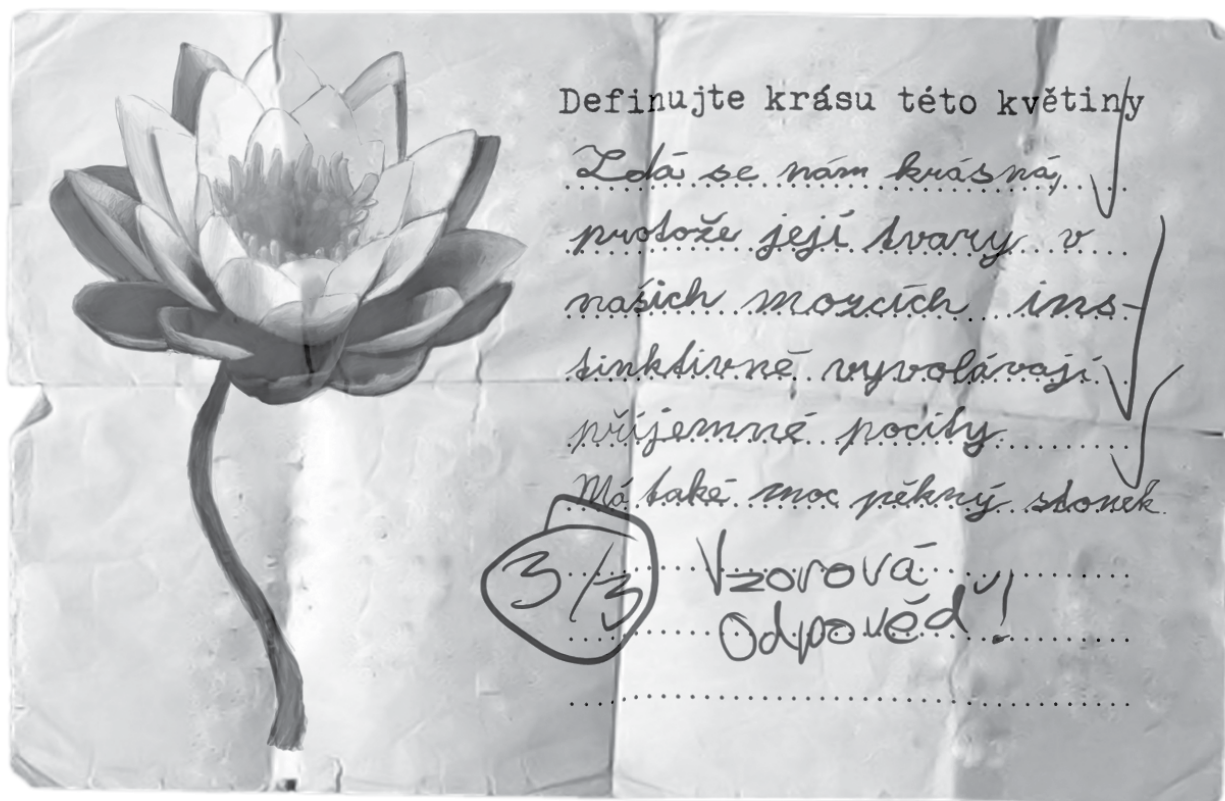 Definujte krásu této květiny
Zdá se nám krásná,
protože její tvary v
našich mozcích ins-
tinktivně vyvolávají
příjemné pocity.
Má také moc pěkný stonek.
3/3
Vzorová
odpověď!